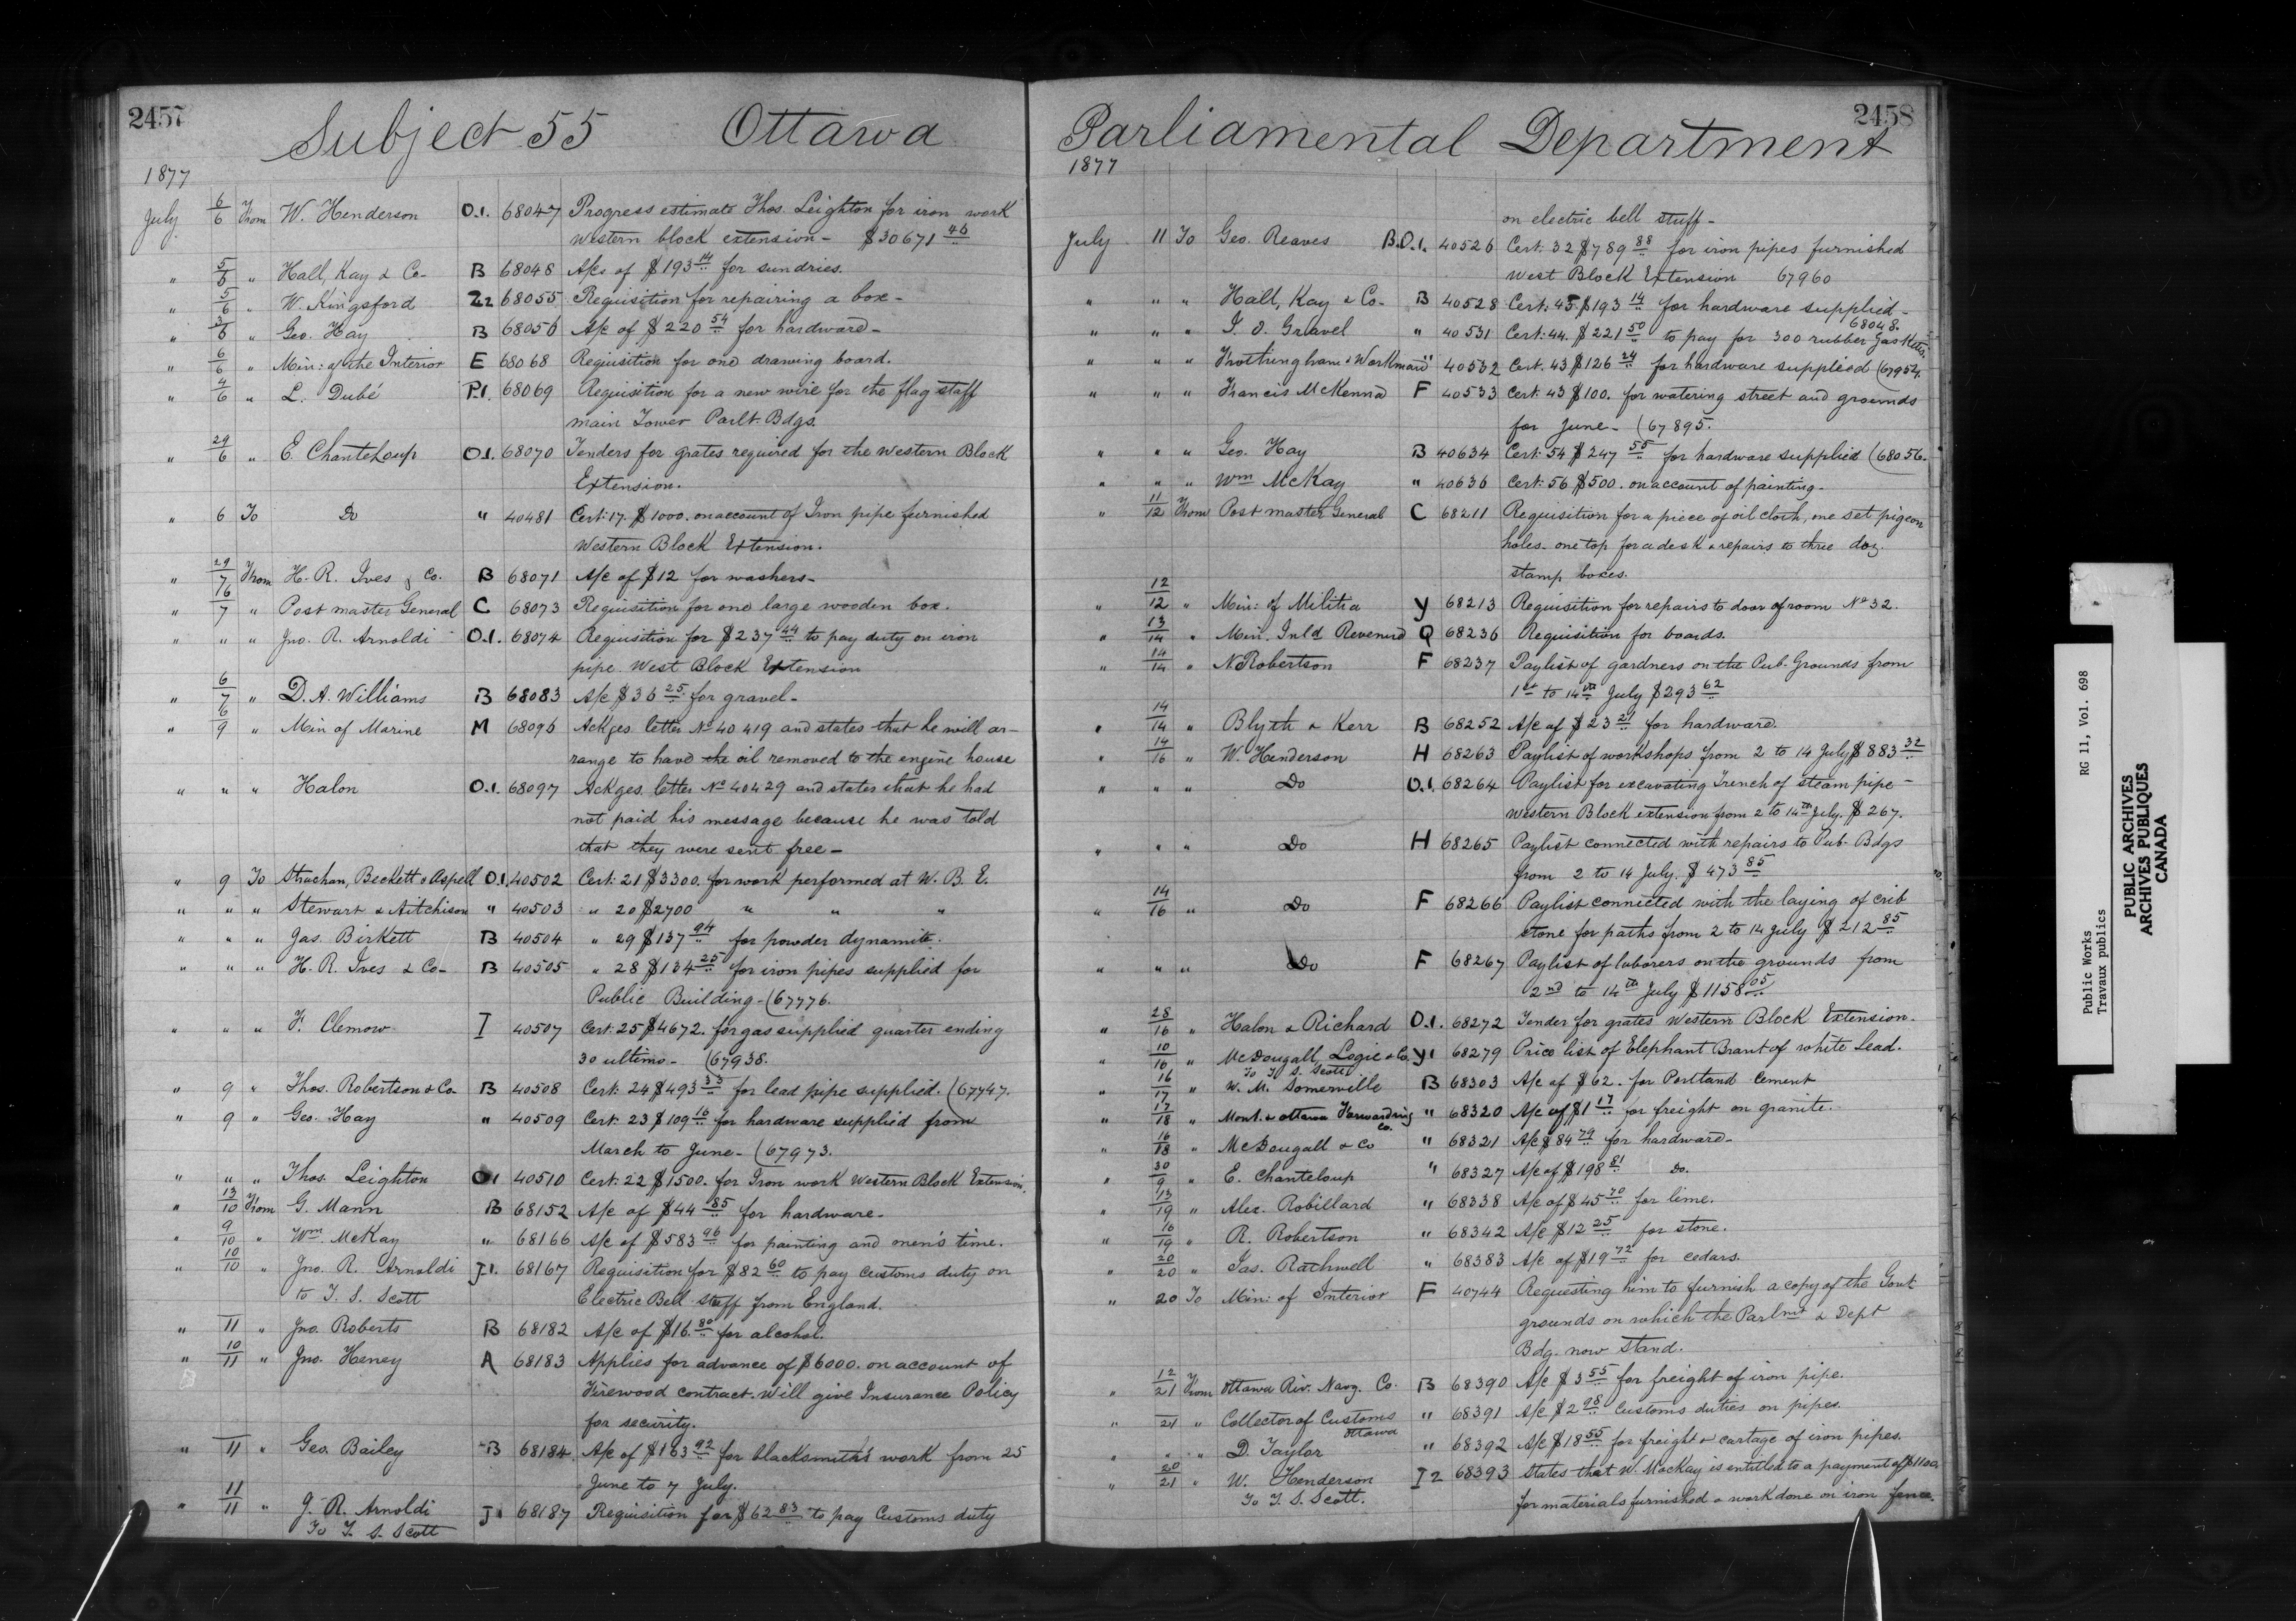 2457
Subject 55 Ottawa
1877
July 6/6 From W. Henderson O.1. 68047 Progress estimate Thos. Leighton for iron work
Western block extension - $30671 46
" 5/6 " Hall, Kay & Co- B 68048 A/cs of $193 14 for sundries.
" 5/6 " W. Kingsford Z2 68055 Requisition for repairing a box-
" 3/6 " Geo. Hay B 68056 A/c of $220 54 for hardware-
" 6/6 " Min: of the Interior E 68068 Requisition for one drawing board.
" 4/6 " L. Dubé P.1. 68069 Requisition for a new wire for the flag staff
main Tower Parlt. Bdgs.
" 29/6 " E. Chanteloup O.1. 68070 Tenders for grates required for the Western Block
Extension.
" 6 To Do " 40481 Cert: 17. $1000. on account of Iron pipe furnished
Western Block Extension.
" 29/7 From H. R. Ives & Co. B 68071 A/c of $12 for washers-
" 16/7 " Post master General C 68073 Requisition for one large wooden box.
" " " Jno. R. Arnoldi O.1. 68074 Requisition for $237 44 to pay duty on iron
pipe. West Block Extension
" 6/7 " D. A. Williams B 68083 A/c $36 25 for gravel-
" 6/9 " Min of Marine M 68096 Ackges letter No 40419 and states that he will ar-
range to have the oil removed to the engine house
" " " Halon O.1. 68097 Ackges. letter No 40429 and states that he had
not paid his message because he was told
that they were sent free-
" 9 To Strachan, Beckett & Aspell O.1. 40502 Cert: 21 $3300. for work performed at W. B. E.
" " " Stewart & Aitchison " 40503 " 20 $2700 " " "
" " " Jas. Birkett B 40504 " 29 $137 94 for powder dynamite.
" " " H. R. Ives & Co- B 40505 " 28 $134 25 for iron pipes supplied for
Public Building- (67776.
" " " F. Clemow I 40507 Cert: 25 $4672. for gas supplied quarter ending
30 ultimo- (67938.
" 9 " Thos. Robertson & Co- B 40508 Cert: 24 $493 33 for lead pipe supplied. (67747.
" 9 " Geo. Hay " 40509 Cert: 23 $109 16 for hardware supplied from
March to June- (67973.
" " " Thos. Leighton O1 40510 Cert: 22 $1500. for Iron work Western Block Extension,
" 13/10 From G. Mann B 68152 A/c of $44 85 for hardware.
" 9/10 " Wm. McKay " 68166 A/c of $583 96 for painting and men's time.
" 10/10 " Jno. R. Arnoldi J.1. 68167 Requisition for $82 60 to pay customs duty on
to T. S. Scott Electric Bell Stuff from England.
" 11 " Jno. Roberts B 68182 A/c of $16. 80 for alcohol.
" 10/11 " Jno. Heney A 68183 Applies for advance of $6000. on account of
Firewood contract. Will give Insurance Policy
for security.
" 11 " Geo. Bailey B 68184 A/c of $163 92 for blacksmith's work from 25
June to 7 July.
" 11/11 " J. R. Arnoldi J1 68187 Requisition for $62 83 to pay Customs duty
To T. S. Scott
2458
Parliamental Department
1877
on electric bell stuff-
July 11 To Geo. Reaves B.O.1. 40526 Cert: 32 $789 88 for iron pipes furnished
West Block Extension 67960
" " " Hall, Kay & Co- B 40528 Cert: 45 $193 14 for hardware supplied-
68048.
" " " J. O. Gravel " 40531 Cert: 44. $221 50 to pay for 300 rubber Gaskets.
" " " Frothingham & Workman " 40532 Cert. 43 $126 24 for hardware supplied (67954.
" " " Francis McKenna F 40533 Cert: 43 $100. for watering street and grounds
for June- (67895.
" " " Geo. Hay B 40634 Cert: 54 $247 55 for hardware supplied (68056.
" " " Wm McKay " 40636 Cert: 56 $500. on account of painting-
" 11/12 From Post master General C 68211 Requisition for a piece of oil cloth, one set pigeon
holes- one top for a desk & repairs to three doz.
stamp boxes.
" 12/12 " Min: of Militia Y 68213 Requisition for repairs to door of room No 32.
" 13/14 " Min. Inld Revenue Q 68236 Requisition for boards.
" 14/14 " N Robertson F 68237 Paylist of gardners on the Pub. Grounds from
1st to 14th July $293 62
" 14/14 " Blyth & Kerr B 68252 A/c of $23 21 for hardware.
" 14/16 " W. Henderson H 68263 Paylist of workshops from 2 to 14 July $883 32
" " " Do O.1. 68264 Paylist for excavating Trench of steam pipe-
Western Block extension from 2 to 14th July. $267.
" " " Do H 68265 Paylist connected with repairs to Pub. Bdgs
from 2 to 14 July. $473 85
" 14/16 " Do F 68266 Paylist connected with the laying of crib
stone for paths from 2 to 14 July $212 85
" " " Do F 68267 Paylist of laborers on the grounds from
2nd to 14th July $1158 05
" 28/16 " Halon & Richard O.1. 68272 Tender for grates Western Block Extension.
" 10/16 " McDougall, Logie & Co. Y1 68279 Price list of Elephant Brant of white lead.
To T. S. Scott
" 16/17 " W. M. Somerville B 68303 A/c of $62. for Portland Cement
" 17/18 " Mont. & Ottawa Forwarding Co. " 68320 A/c of $1 17 for freight on granite.
" 16/18 " McDougall & Co " 68321 A/c $84 79 for hardware-
" 30/9 " E. Chanteloup " 68327 A/c of $198 81 Do.
" 13/19 " Alex. Robillard " 68338 A/c of $45 70 for lime.
" 16/19 " R. Robertson " 68342 A/c $12 25 for stone.
" 20/20 " Jas. Rathwell " 68383 A/c of $19 72 for cedars.
" 20 To Min: of Interior F 40744 Requesting him to furnish a copy of the Govt
grounds on which the Parlmt & Dept
Bdg. now stand.
" 12/21 From Ottawa Riv. Navg. Co. B 68390 A/c $3 55 for freight of iron pipe.
" 21 " Collector of Customs Ottawa " 68391 A/c $2 98 Customs duties on pipes.
" " " D. Taylor " 68392 A/c $18 55 for freight & cartage of iron pipes.
" 20/21 " W. Henderson I2 68393 States that W. MacKay is entitled to a payment of $1100.
To T. S. Scott. for materials furnished & work done on iron fence.
Public Works
Travaux publics
RG 11, Vol. 698
PUBLIC ARCHIVES
ARCHIVES PUBLIQUES
CANADA